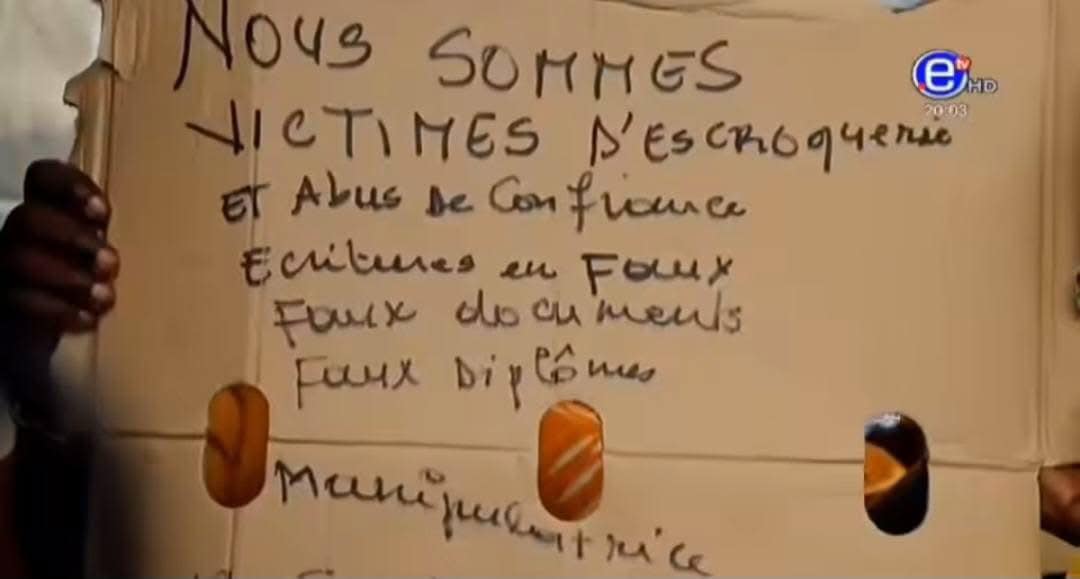 NOUS SOMMES
VICTIMES D'ESCROQUERIE
ET Abus De Confiance
Ecritures en Faux
Faux documents
Faux Diplômes
Manipulatrice
e tv HD
20:03